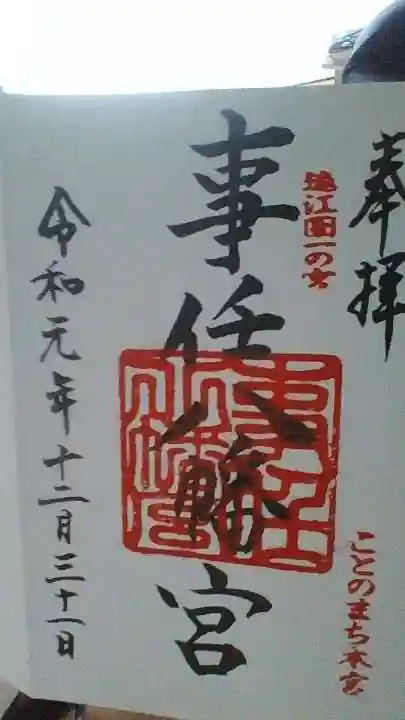 奉拝
遠江國一の宮
ことのまち本宮
事任八幡宮
事任
八幡宮
令和元年十二月三十一日